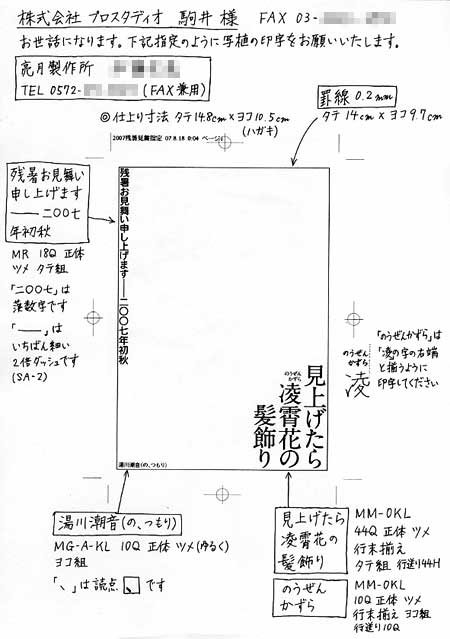 株式会社 プロスタディオ 駒井 様 FAX 03-
お世話になります。下記指定のように写植の印字をお願いいたします。
亮月製作所
TEL 0572- (FAX兼用)
罫線 0.2mm
タテ 14cm × ヨコ 9.7cm
◎仕上り寸法 タテ14.8cm × ヨコ10.5cm
(ハガキ)
2007残暑見舞指定 07.8.18 0:04 ページ1
残暑お見舞い
申し上げます
―― 二〇〇七
年初秋
MR 18Q 正体
ツメ タテ組
「二〇〇七」は
漢数字です
「――」は
いちばん細い
2倍ダッシュです
(SA-2)
残暑お見舞い申し上げます――二〇〇七年初秋
見上げたら
のうぜん
かずら
凌霄花の
髪飾り
湯川潮音(の、つもり)
のうぜん
かずら
凌
「のうぜんかずら」は
「凌」の字の右端
と揃うように
印字してください
湯川潮音(の、つもり)
MG-A-KL 10Q 正体 ツメ(ゆるく)
ヨコ組
「、」は読点 、 です
見上げたら
凌霄花の
髪飾り
MM-OKL
44Q 正体 ツメ
行末揃え
タテ組 行送り44H
のうぜん
かずら
MM-OKL
10Q 正体 ツメ
行末揃え ヨコ組
行送り10Q